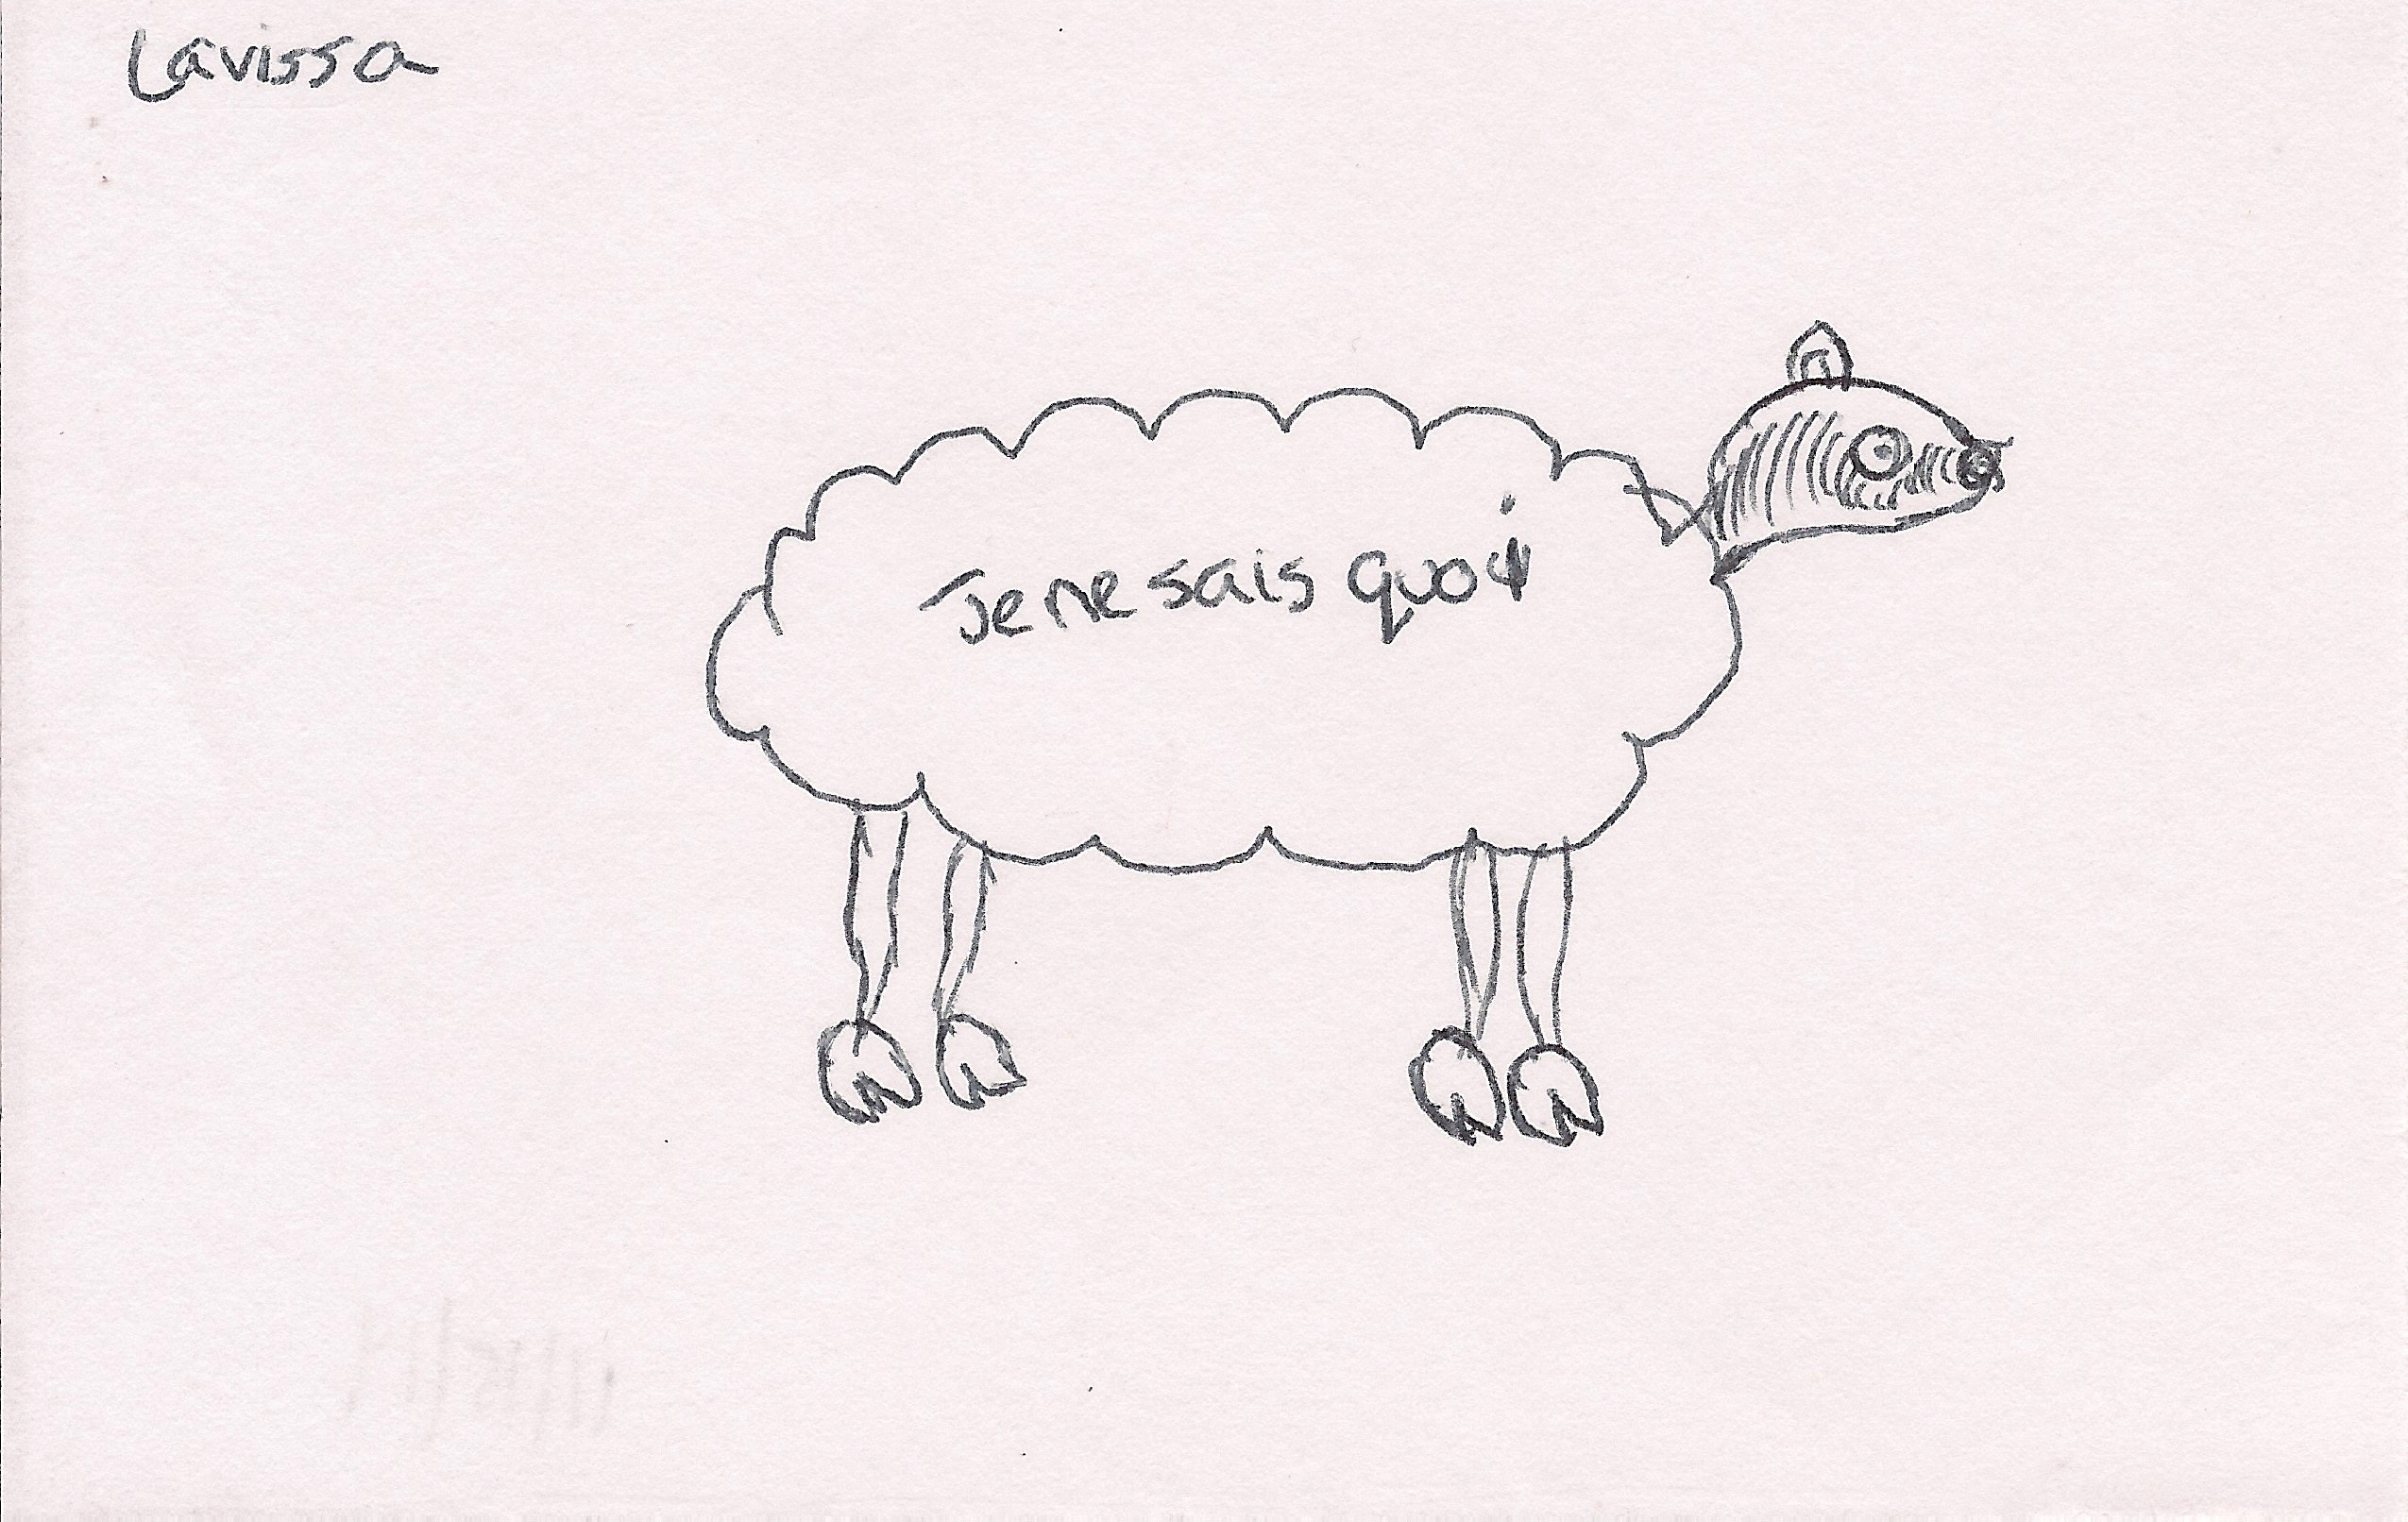 Lavissa
Je ne sais quoi